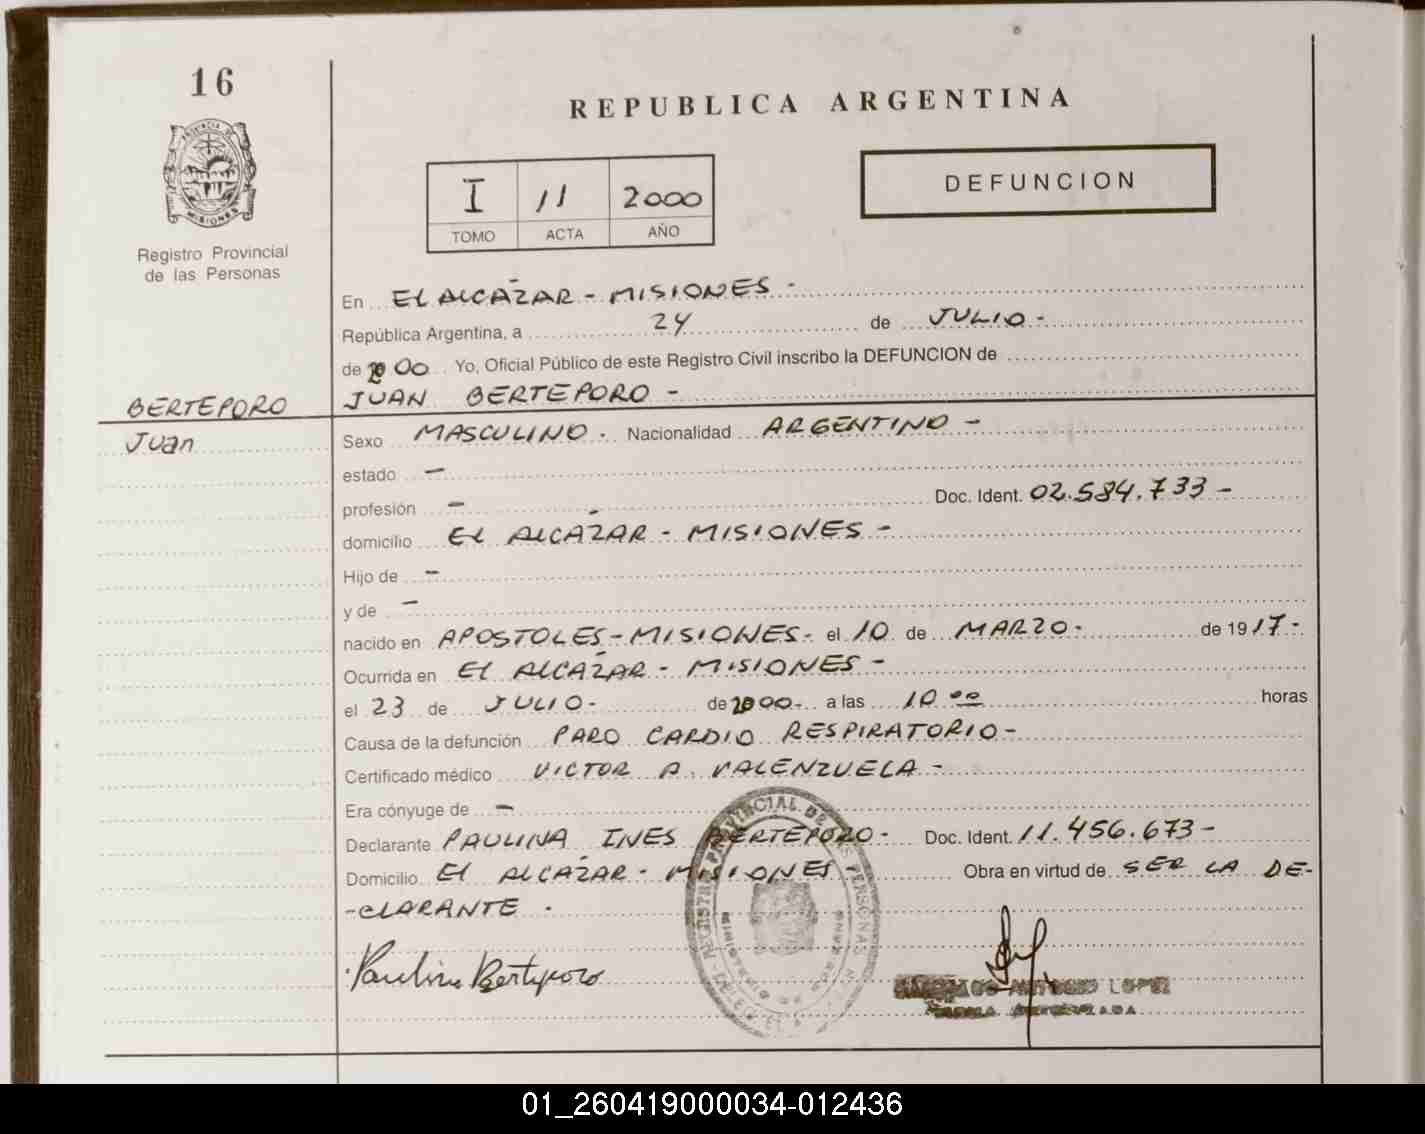 16
REPUBLICA ARGENTINA
PROVINCIA DE
MISIONES
Registro Provincial
de las Personas
I 11 2000
TOMO ACTA AÑO
DEFUNCION
En EL ALCÁZAR - MISIONES -
República Argentina, a 24 de JULIO -
de 2000 Yo, Oficial Público de este Registro Civil inscribo la DEFUNCION de
BERTEPORO JUAN BERTEPORO -
Juan
Sexo MASCULINO. Nacionalidad ARGENTINO -
estado -
profesión - Doc. Ident. 02.584.733 -
domicilio EL ALCÁZAR - MISIONES -
Hijo de -
y de -
nacido en APOSTOLES - MISIONES - el 10 de MARZO - de 1917 -
Ocurrida en EL ALCÁZAR - MISIONES -
el 23 de JULIO - de 2000 - a las 10 00 horas
Causa de la defunción PARO CARDIO RESPIRATORIO -
Certificado médico VICTOR A. VALENZUELA -
Era cónyuge de -
Declarante PAULINA INES BERTEPORO - Doc. Ident. 11.456.673 -
Domicilio El ALCÁZAR - MISIONES Obra en virtud de SER LA DE-
-CLARANTE.
Paulina Berteporo
PROVINCIAL DE LAS PERSONAS
ANTONIO LOPEZ
01_260419000034-012436